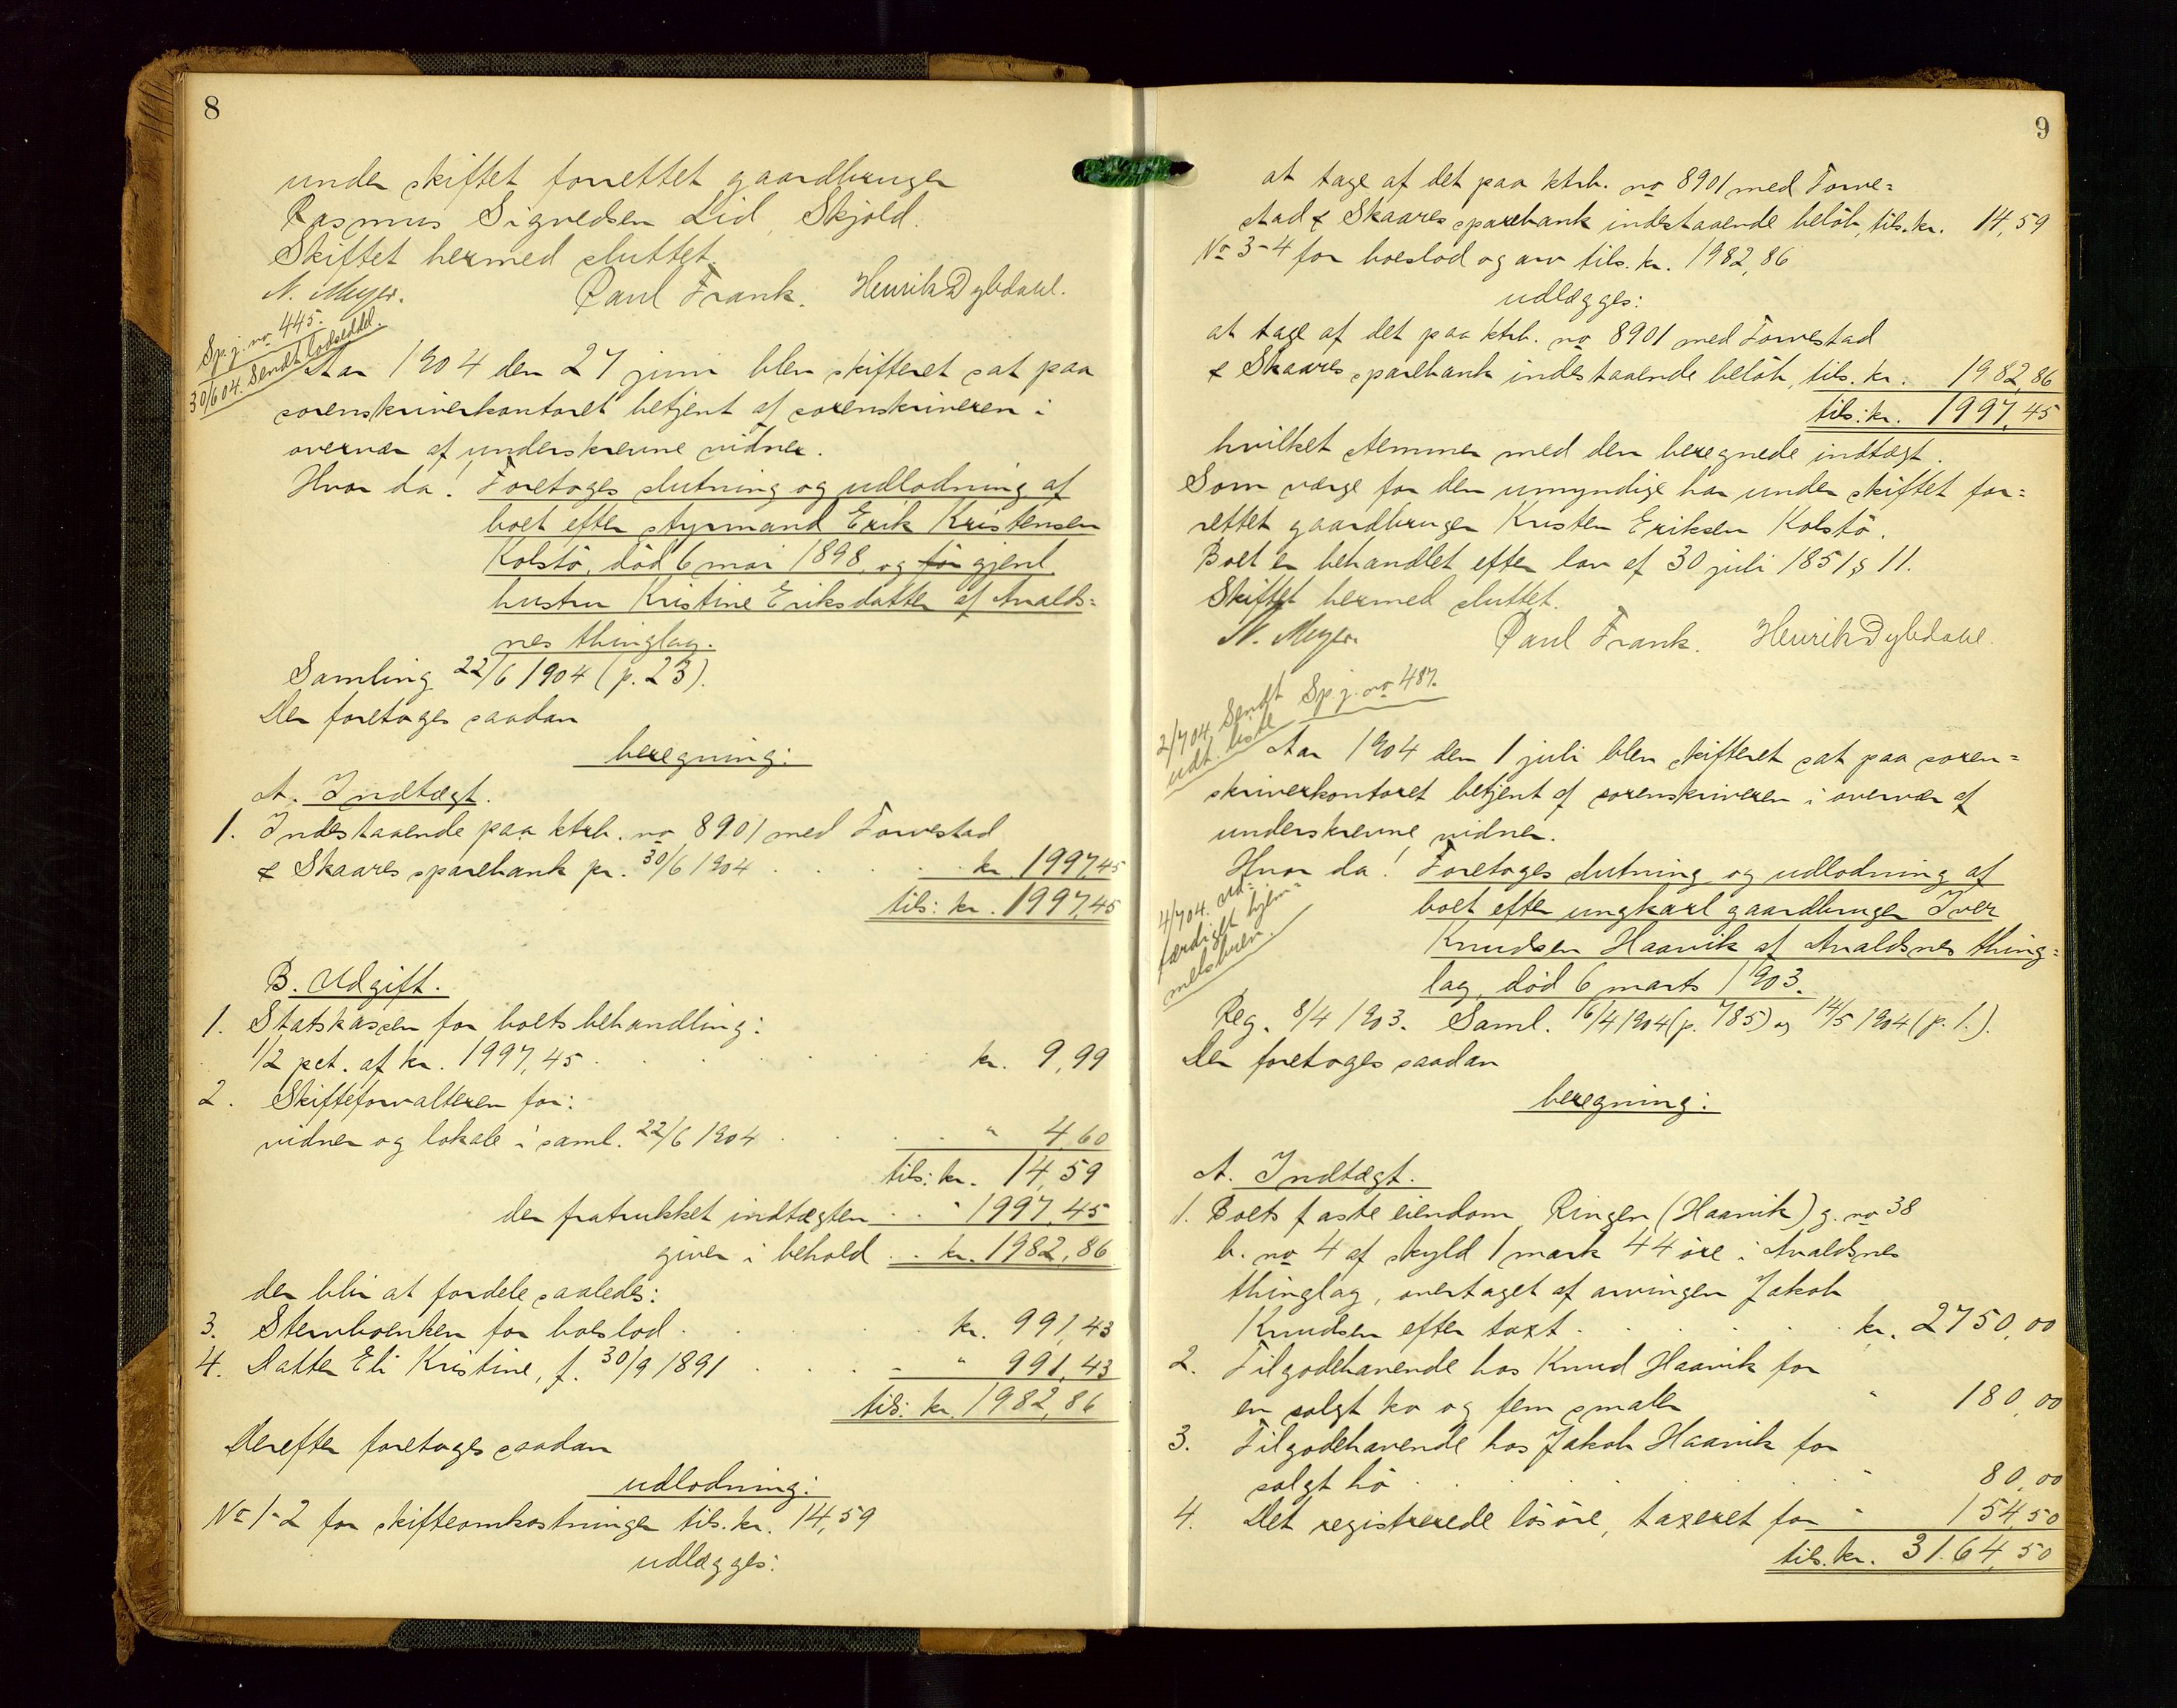 8
under skiftet forrettet gaardbruger
Rasmus Sigvedsen Lid, Skjold.
Skiftet hermed sluttet.
N. Meyer. Paul Frank. Henrik Dybdahl.
Sp. j. no 445.
30/6 04. Sendt lodseddel.
Aar 1904 den 27 juni blev skifteret sat paa
sorenskriverkontoret betjent af sorenskriveren i
overvær af underskrevne vidner.
Hvor da! Foretoges slutning og udlodning af
boet efter styrmand Erik Kristensen
Kolstø, død 6 mai 1898, og før gjenl.
hustru Kristine Eriksdatter af Avalds=
nes thinglag.
Samling 22/6 1904 (p. 23).
Der foretoges saadan
beregning:
A. Indtægt.
1. Indestaaende paa ktrb. no 8901 med Torvestad
& Skaares sparebank pr. 30/6 1904 . . . . kr. 1997,45
tils: kr. 1997,45
B. Udgift.
1. Statskassen for boets behandling:
1/2 pct. af kr. 1997,45 . . . . . . kr. 9,99
2. Skifteforvalteren for:
vidner og lokale i saml. 22/6 1904 . . . . " 4,60
tils: kr. 14,59
der fratrukket indtægten . . " 1997,45
giver i behold . . kr. 1982,86
der blir at fordele saaledes:
3. Stervboenken for boeslod . . . . . kr. 991,43
4. Datter Eli Kristine, f. 30/9 1891 . . . . " 991,43
tils: kr. 1982,86
Derefter foretoges saadan
udlodning:
No 1-2 for skifteomkostninger tils. kr. 14,59
udlægges:
9
at tage af det paa ktrb. no 8901 med Torve=
stad & Skaares sparebank indestaaende beløb, tils. kr. 14,59
No 3-4 for boeslod og arv tils. kr. 1982,86
udlægges:
at tage af det paa ktrb. no 8901 med Torvestad
& Skaares sparebank indestaaende beløb, tils. kr. 1982,86
tils: kr. 1997,45
hvilket stemmer med den beregnede indtægt.
Som værge for den umyndige har under skiftet for=
rettet gaardbruger Kristen Eriksen Kolstø.
Boet er behandlet efter lov af 30 juli 1851 § 11.
Skiftet hermed sluttet.
N. Meyer. Paul Frank. Henrik Dybdahl.
2/7 04. Sendt Sp. j. no 487.
udt. liste
Aar 1904 den 1 juli blev skifteret sat paa soren=
skriverkontoret betjent af sorenskriveren i overvær af
underskrevne vidner.
Hvor da! Foretoges slutning og udlodning af
boet efter ungkarl gaardbruger Iver
Knudsen Haavik af Avaldsnes thing=
lag, død 6 marts 1903.
4/7 04. ud=
færdiget hjem=
melsbrev.
Reg. 8/4 1903. Saml. 16/4 1904 (p. 785) og 14/5 1904 (p. 1.).
Der foretoges saadan
beregning:
A. Indtægt.
1. Boets faste eiendom Ringen (Haavik) g. no 38
b. no 4 af skyld 1 mark 44 øre i Avaldsnes
thinglag, overtaget af arvingen Jakob
Knudsen efter taxt . . . . . . kr. 2750,00
2. Tilgodehavende hos Knud Haavik for
en solgt ko og fem smaler " 180,00
3. Tilgodehavende hos Jakob Haavik for
solgt hø . . . . . " 80,00
4. Det registrerede løsøre, taxeret for " 154,50
tils. kr. 3164,50